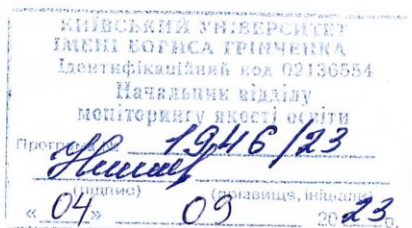 КИЇВСЬКИЙ УНІВЕРСИТЕТ
ІМЕНІ БОРИСА ГРІНЧЕНКА
Ідентифікаційний код 02136554
Начальник відділу
моніторингу якості освіти
Програма № 1946/23
(підпис) (прізвище, ініціали)
« 04 » 09 20 23 р.